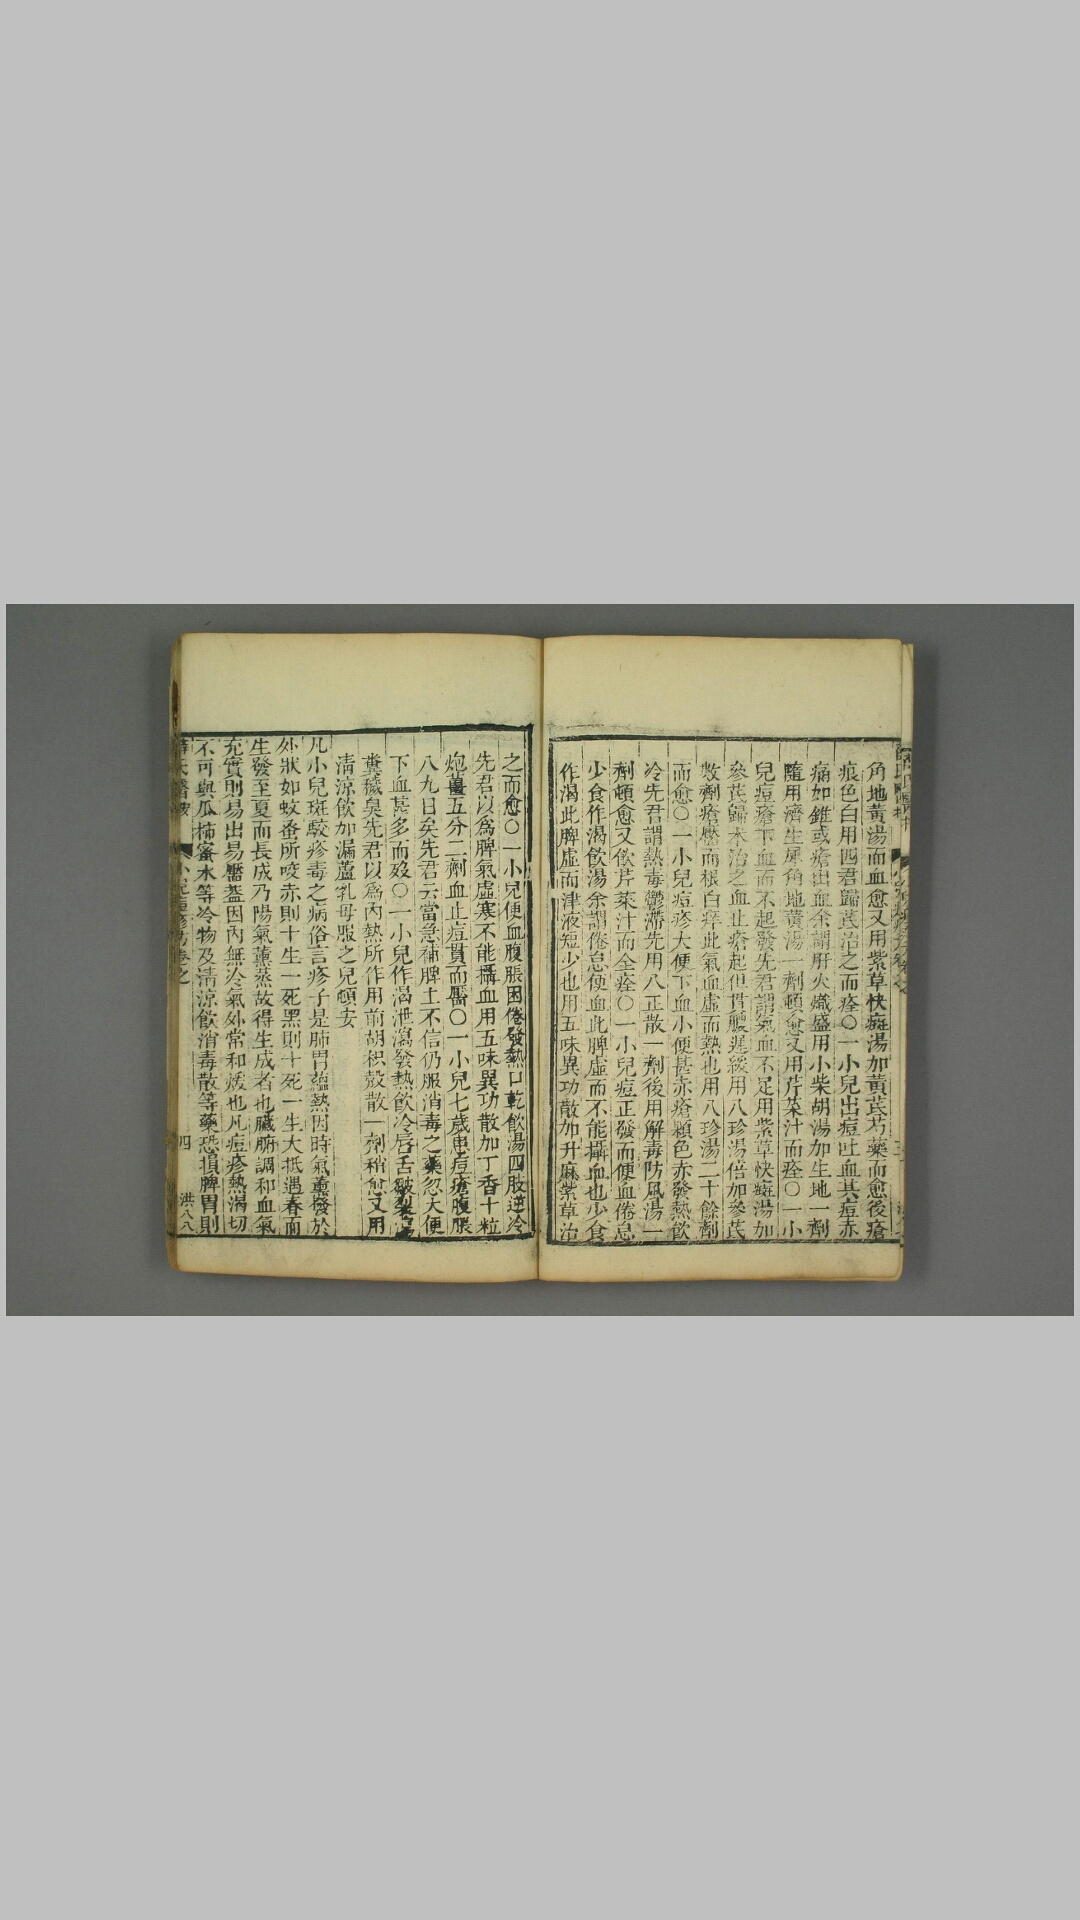 角地黃湯而血愈又用紫草快癍湯加黃芪芍藥而愈後瘡
痕色白用四君歸芪治之而痊〇一小兒出痘吐血其痘赤
痛如錐或瘡出血余謂肝火熾盛用小柴胡湯加生地一劑
隨用濟生犀角地黃湯一劑頓愈又用芹菜汁而痊〇一小
兒痘瘡下血而不起發先君謂氣血不足用紫草快癍湯加
參芪歸木治之血止瘡起但貫膿遲緩用八珍湯倍加參芪
數劑瘡靨而根白痒此氣血虛而熱也用八珍湯二十餘劑
而愈〇一小兒痘疹大便下血小便甚赤瘡顆色赤發熱飲
冷先君謂熱毒鬱滯先用八正散一劑後用解毒防風湯一
劑頓愈又飲芹菜汁而全痊〇一小兒痘正發而便血倦怠
少食作渴飲湯余謂倦怠便血此脾虛而不能攝血也少食
作渴此脾虛而津液短少也用五味異功散加升麻紫草治
之而愈〇一小兒便血腹脹困倦發熱口乾飲湯四肢逆冷
先君以爲脾氣虛寒不能攝血用五味異功散加丁香十粒
炮薑五分二劑血止痘貫而靨〇一小兒七歲患痘瘡腹脹
八九日矣先君云當急補脾土不信仍服消毒之藥忽大便
下血甚多而歿〇一小兒作渴泄瀉發熱飲冷唇舌皴裂
糞穢臭先君以爲內熱所作用前胡枳殼散一劑稍愈又用
清涼飲加漏蘆乳母服之兒頓安
凡小兒斑駮疹毒之病俗言疹子是肺胃蘊熱因時氣薰發於
外狀如蚊蚤所咬赤則十生一死黑則十死一生大抵遇春而
生發至夏而長成乃陽氣薰蒸故得生成者也臟腑調和血氣
充實則易出易靨葢因內無冷氣外常和煖也凡痘疹熱渴切
不可與瓜柿蜜水等冷物及清涼飲消毒散等藥恐損脾胃則
薛氏醫按 小兒痘疹方卷之 四 洪八八